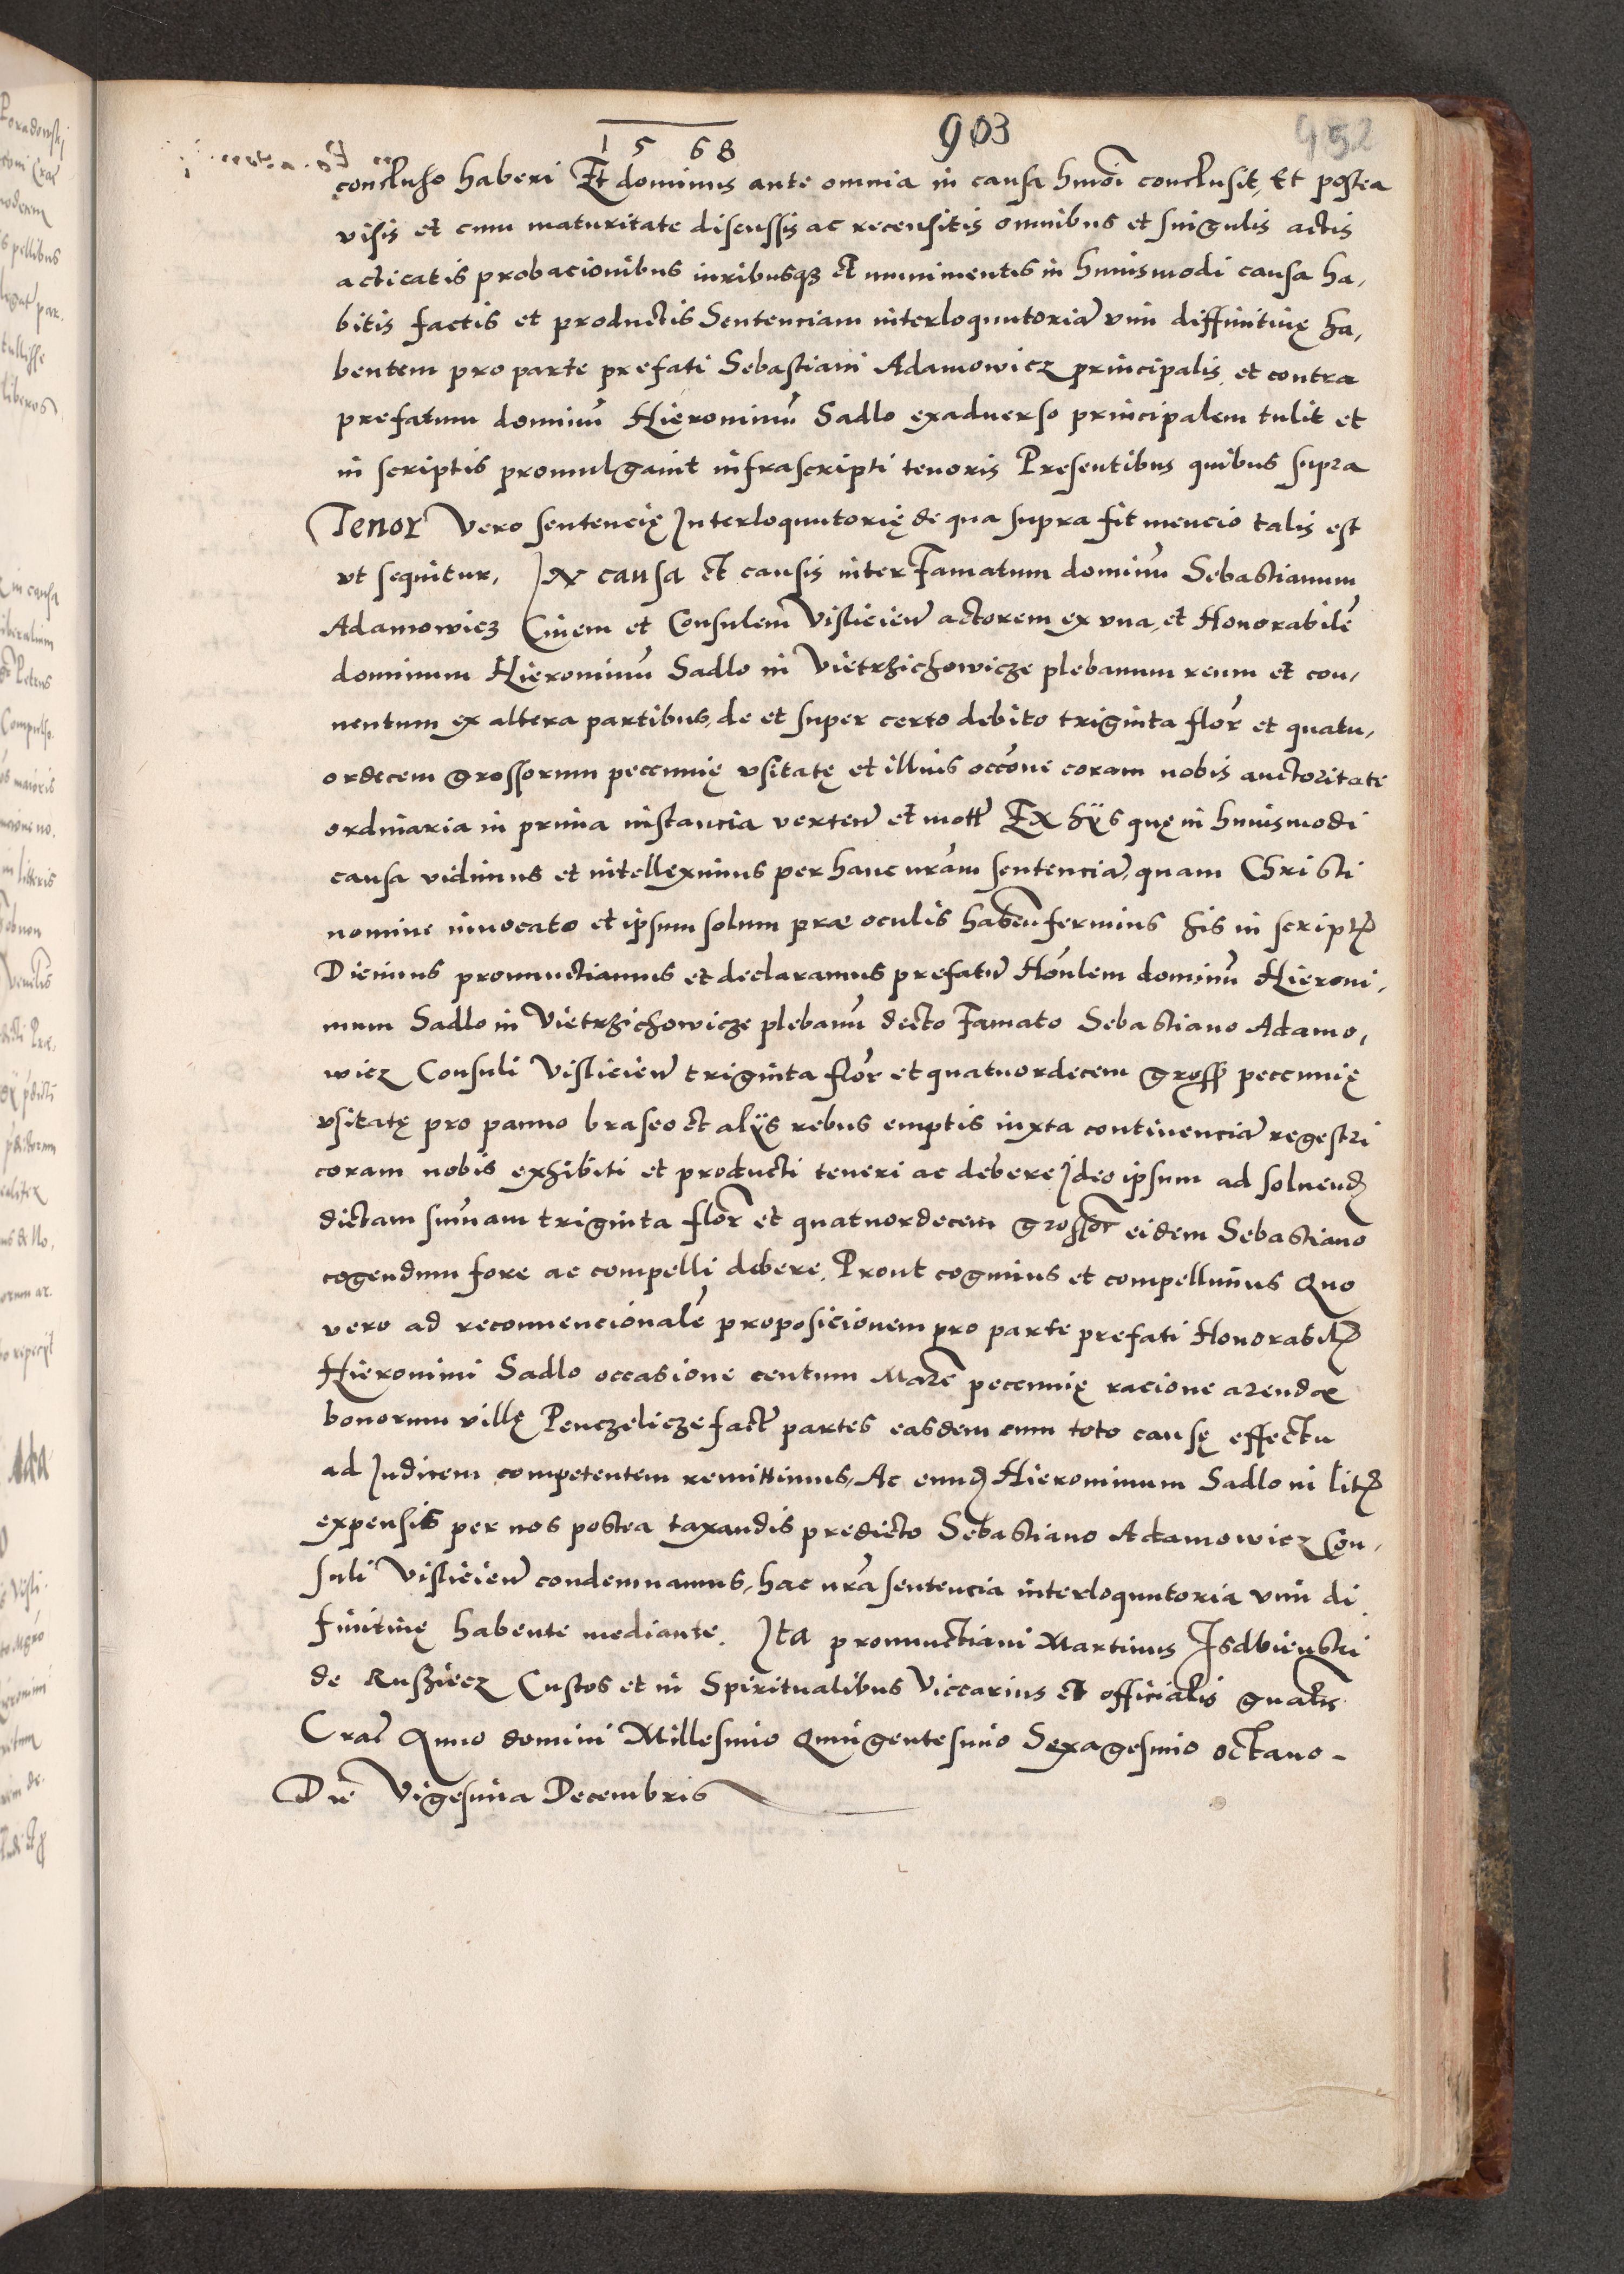 1568 903 952
concluso haberi Et dominus ante omnia in causa hmoi conclusit, Et postea
visis et cum maturitate discussis ac recensitis omnibus et singulis actis
acticatis probacionibus iuribusqz et munimentis in huiusmodi causa ha,
bitis factis et productis Sentenciam interloquutoria vim diffinitiuę ha,
bentem pro parte prefati Sebastiani Adamowicz principalis et contra
prefatum dominu Hieronimu Sadlo exaduerso principalem tulit et
in scriptis promulgauit infrascripti tenoris Presentibus quibus supra
Tenor Vero sentencię Interloquutorię de qua supra fit mencio talis est
vt sequitur, In causa et causis inter Famatum dominu Sebastianum
Adamowicz Ciuem et Consulem Vislicien actorem ex vna, et Honorabile
dominum Hieronimu Sadlo in Vietrzichowicze plebanum reum et con,
uentum ex altera partibus, de et super certo debito triginta flor et quatu,
ordecem grossorum peccunię vsitatę et illius occone coram nobis auctoritate
ordinaria in prima instancia verten et mott Ex hijs quę in huiusmodi
causa vidimus et intelleximus per hanc nram sentencia, quam Christi
nomine inuocato et ipsum solum præ oculis haben ferimus his in script
Dicimus pronunctiamus et declaramus prefatu Honlem dominu Hieroni,
mum Sadlo in Vietrzichowicze plebanu dicto Famato Sebastiano Adamo,
wicz Consuli Vislicien triginta flor et quatuordecem gross peccunię
vsitatę pro panno braseo et alijs rebus emptis iuxta continencia regestri
coram nobis exhibiti et producti teneri ac debere Ideo ipsum ad soluend
dictam sumam triginta flor et quatuordecem grossor eidem Sebastiano
cogendum fore ac compelli debere. Prout cogimus et compellimus Quo
vero ad reconuencionale proposicionem pro parte prefati Honorabil
Hieronimi Sadlo occasione centum Marc peccunię racione arendæ
bonorum villę Penczelicze fact partes easdem cum toto causę effectu
ad Iudicem competentem remittimus, Ac eund Hieronimum Sadlo in lit
expensis per nos postea taxandis predicto Sebastiano Adamowicz Con,
suli Vislicien condemnamus, hac nra sentencia interloquutoria vim di
finitiuę habente mediante. Ita pronunctiaui Martinus Isdbienski
de Rusziecz Custos et in Spiritualibus Viccarius et officialis gnalis
Crac Anno domini Millesimo Quingentesimo Sexagesimo octauo-
Die Vigesima Decembris